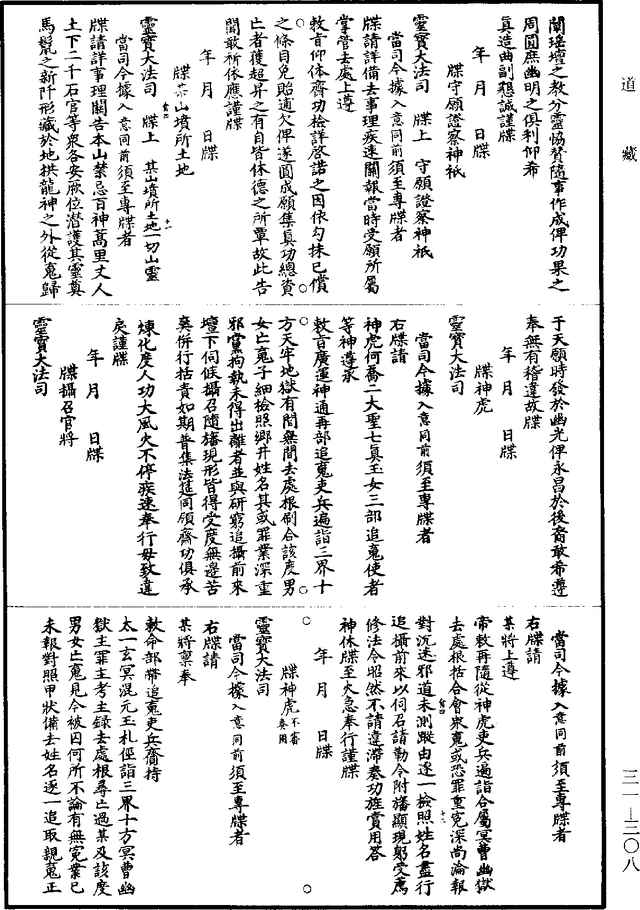 道藏
闡瑤壇之教分靈恊贊隨事作成俾功果之
周圓庶幽明之俱利仰希
真造曲副懇誠謹牒
年　月　日牒
牒守願證察神祇
靈寶大法司　牒上　守願證察神祇
當司今據入意同前須至專牒者
牒請詳備去事理疾速關報當時受願所屬
掌管去處上遵
敕旨仰体齊功檢詳啓諾之因依勾抹已償
之條目免貽逋欠俾遂圓成願集真功總資
亡者獲超昇之有自皆休德之所覃故此告
聞敢祈依應謹牒
年　月　日牒
牒某山墳所土地
靈寶大法司　牒上　某山墳所土地一切山靈
當司今據入意同前須至專牒者
牒請詳事理關告本山禁忌百神蒿里丈人
土下二千石官等衆各安厥位潜護其靈奠
馬鬛之新阡形藏於地拱龍神之外從䰟歸
于天願時發於幽光俾永昌於後裔敢希遵
奉無有稽違故牒
年　月　日牒
牒神虎
靈寶大法司
當司今據入意同前須至專牒者
右牒請
神虎何喬二大聖七真玉女三部追䰟使者
等神遵承
敕旨廣運神通再部追䰟吏兵遍詣三界十
方天牢地獄有間無間去處根刷合該度男
女亡䰟子細檢照鄉井姓名其或罪業深重
邪黨拘執未得出離者並與研窮追攝前來
壇下伺候攝召隨旛現形皆得受度無邊苦
爽併行括責如期普集法筵同願齊功俱承
煉化度人功大風火不停疾速奉行毋致違
戾謹牒
年　月　日牒
牒攝召官將
靈寶大法司
當司今據入意同前須至專牒者
右牒請
某將上遵
帝敕再隨從神虎吏兵遍詣合屬冥曹幽獄
去處根括合會衆䰟或恐罪重寃深尚淪報
對沉迷邪道未測蹤由逐一檢照姓名盡行
追攝前來以伺召請勒令附旛顯現躬受薦
修法令昭然不請違滯奏功旌賞用答
神休牒至火急奉行謹牒
年　月　日牒
牒神虎不審奏用
靈寶大法司
當司今據入意同前須至專牒者
右牒請
某將禀奉
敕命部帶追䰟吏兵齎持
太一玄冥混元玉札徑詣三界十方冥曹幽
獄主罪主考主録去處根尋亡過某及該度
男女亡䰟見今被因何所不論有無寃業已
未報對照甲狀備去姓名逐一追取親䰟正
三一—三〇八